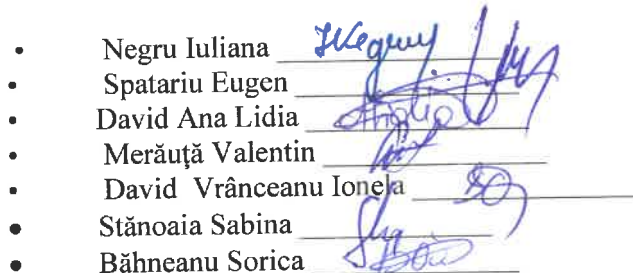 • Negru Iuliana
• Spatariu Eugen
• David Ana Lidia
• Merăuță Valentin
• David Vrânceanu Ionela
• Stănoaia Sabina
• Băhneanu Sorica